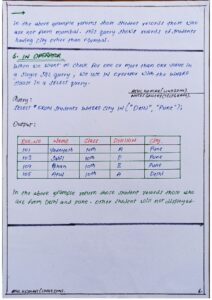 In the above example returns those student records those who
are not from mumbai. This query should records of students
having city other than mumbai.
6. IN OPERATOR
When we want to check for one or more than one value in
a single SQL query, we use IN operator with the WHERE
clause in a SELECT query.
Query:
Select * from students where city IN ("Delhi", "Pune");
Output:
Roll_No Name Class Division City
101 10th A Pune
103 10th E Pune
104 10th B Pune
105 Atul 10th A Delhi
In the above example return those student records those who
are from Delhi and Pune. Other student will not displayed.